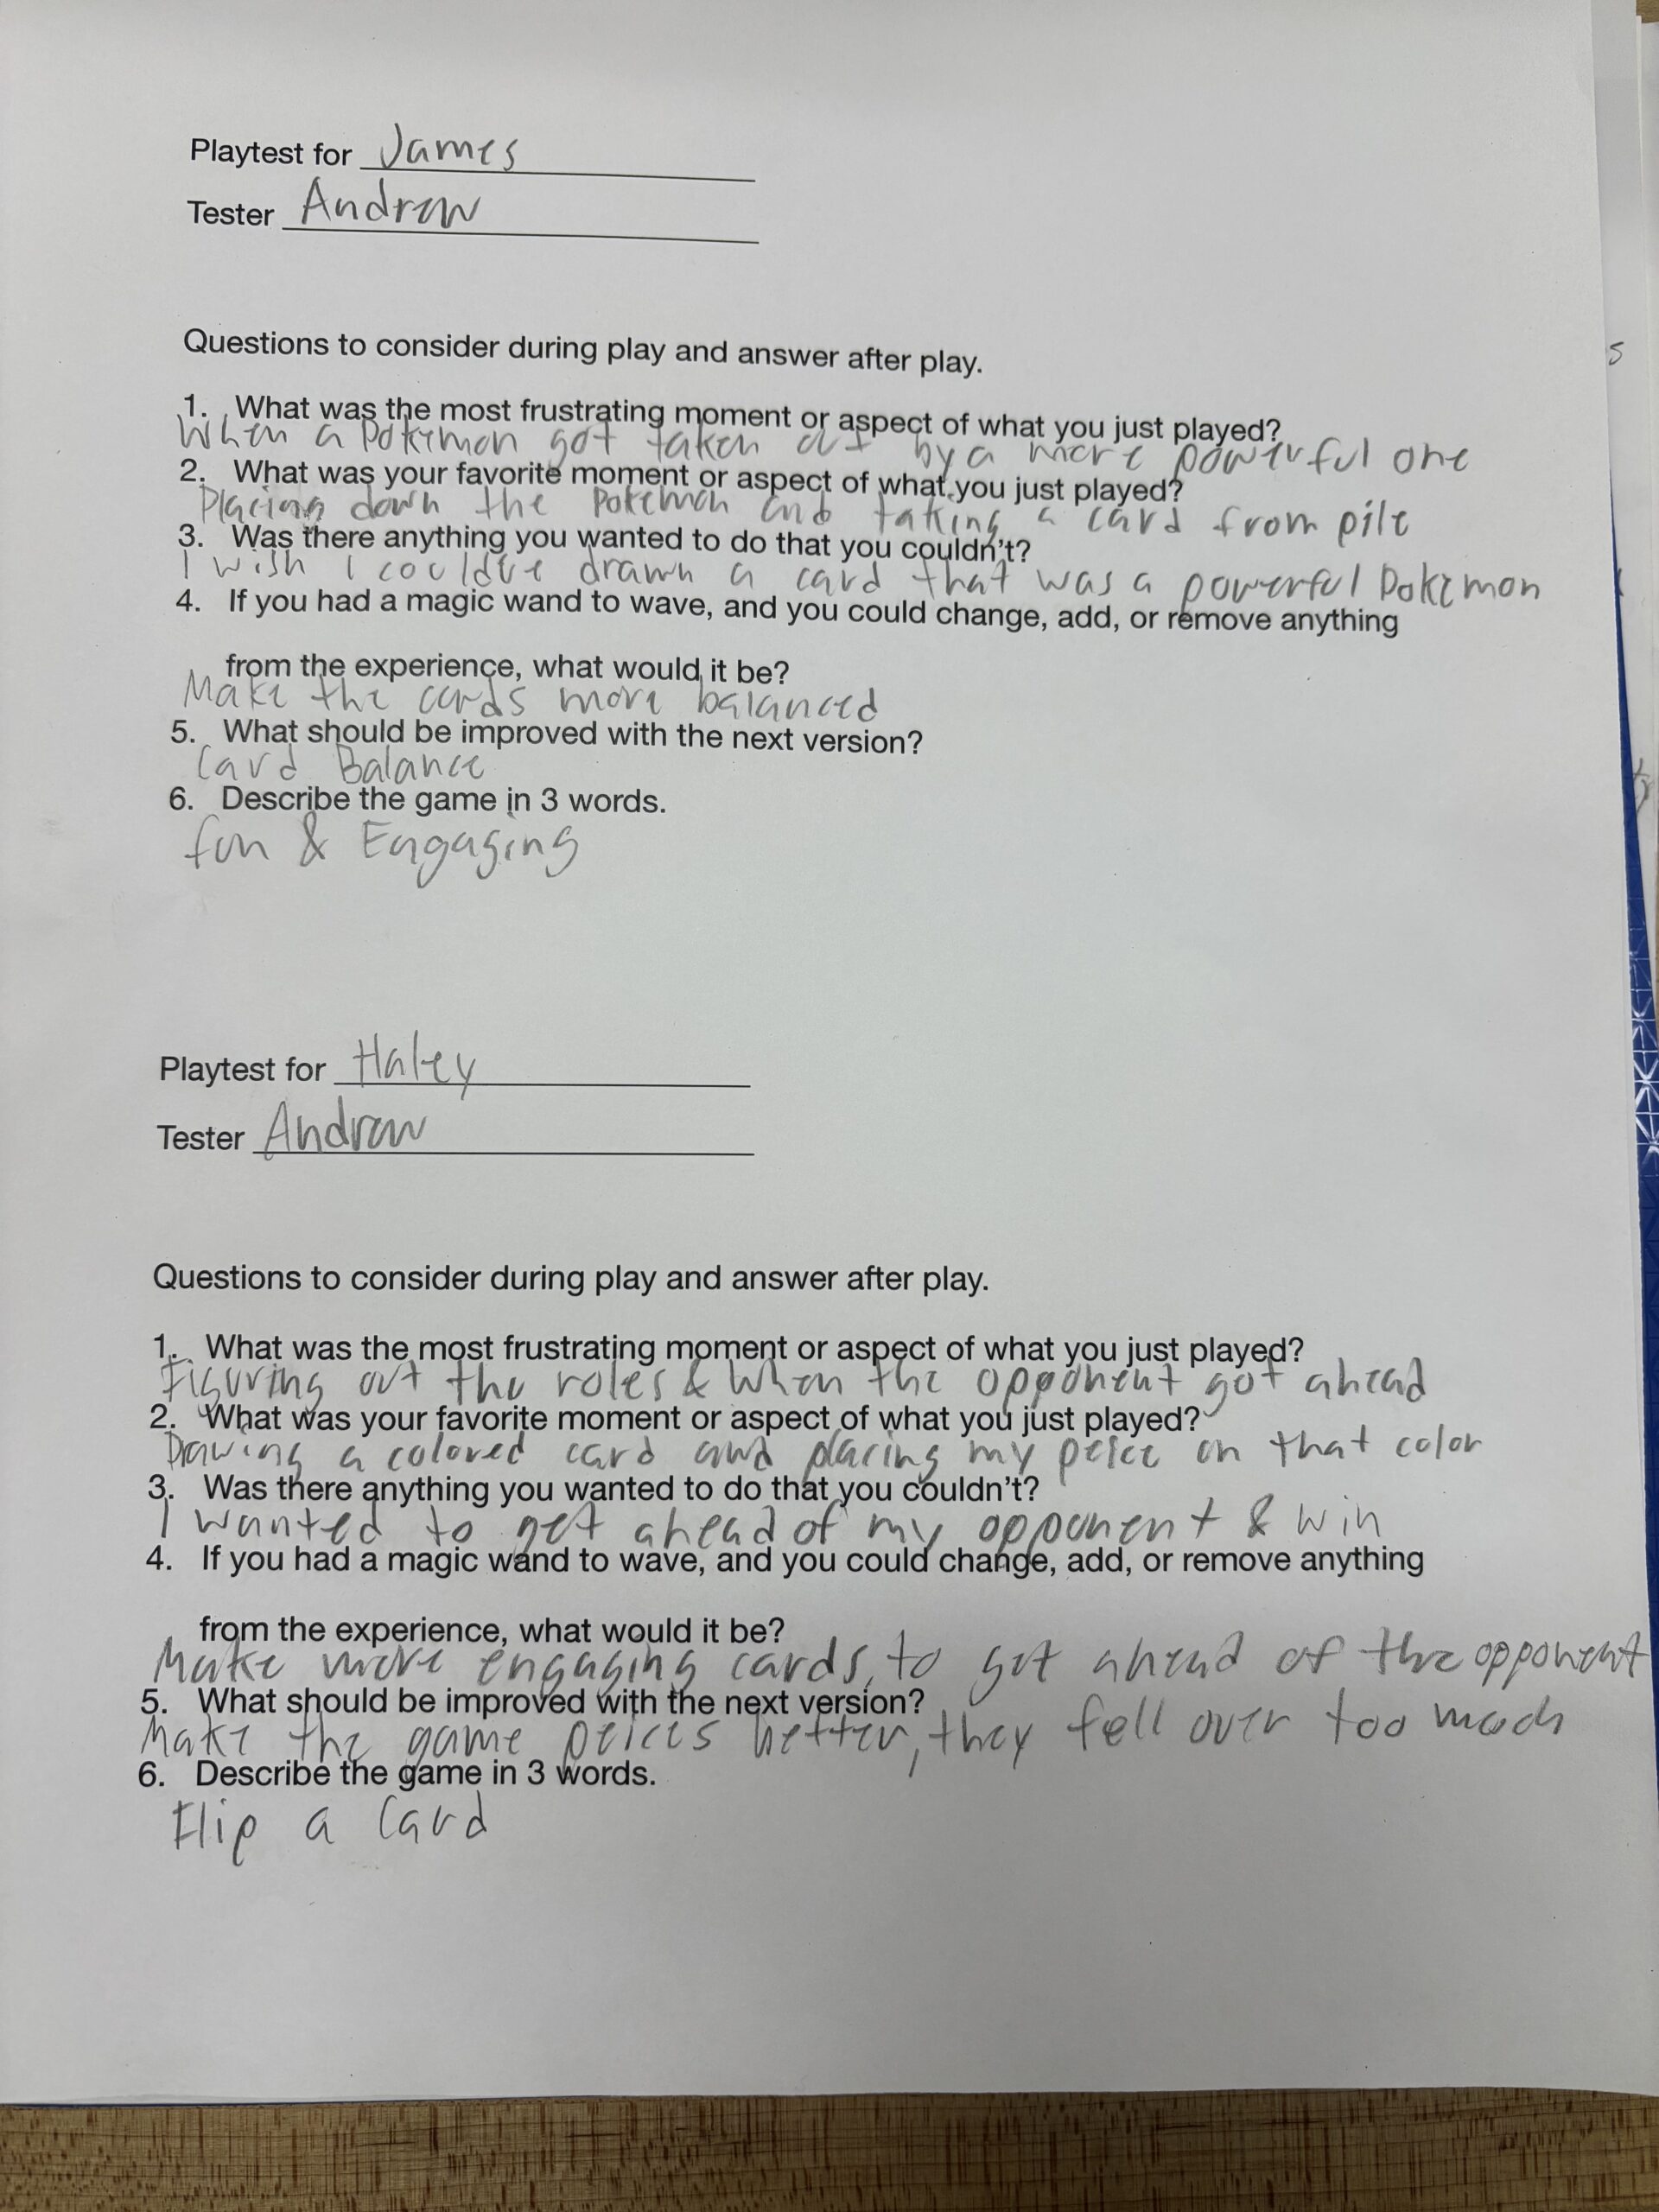 Playtest for James
Tester Andrew
Questions to consider during play and answer after play.
1. What was the most frustrating moment or aspect of what you just played?
When a Pokemon got taken out by a more powerful one
2. What was your favorite moment or aspect of what you just played?
Placing down the Pokemon and taking a card from pile
3. Was there anything you wanted to do that you couldn't?
I wish I couldve drawn a card that was a powerful Pokemon
4. If you had a magic wand to wave, and you could change, add, or remove anything
from the experience, what would it be?
Make the cards more balanced
5. What should be improved with the next version?
Card Balance
6. Describe the game in 3 words.
fun & Engaging
Playtest for Haley
Tester Andrew
Questions to consider during play and answer after play.
1. What was the most frustrating moment or aspect of what you just played?
Figuring out the roles & When the opponent got ahead
2. What was your favorite moment or aspect of what you just played?
Drawing a colored card and placing my peice on that color
3. Was there anything you wanted to do that you couldn't?
I wanted to get ahead of my opponent & win
4. If you had a magic wand to wave, and you could change, add, or remove anything
from the experience, what would it be?
Make more engaging cards, to get ahead of the opponent
5. What should be improved with the next version?
Make the game peices better, they fell over too much
6. Describe the game in 3 words.
Flip a Card